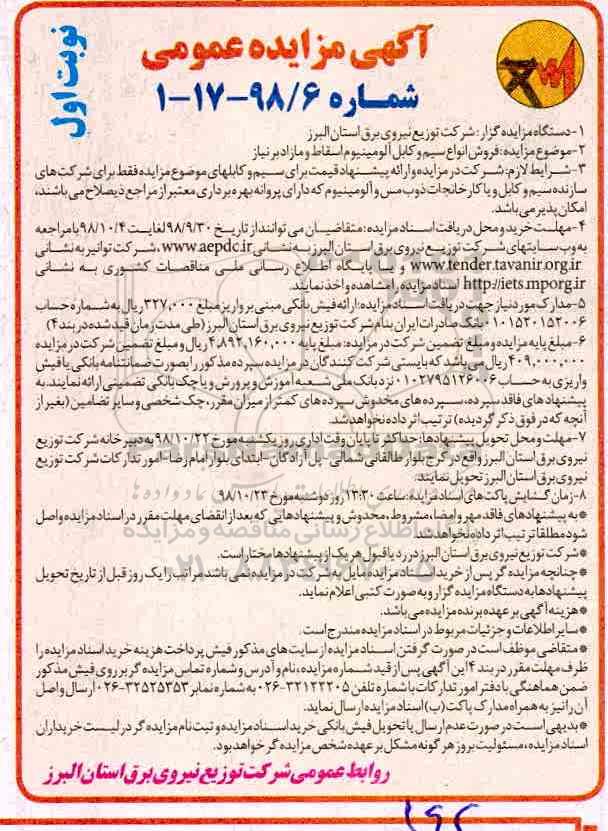 نوبت اول
آگهی مزایده عمومی
شماره ۹۸/۶-۱۷-۱
۱-دستگاه مزایده گزار: شرکت توزیع نیروی برق استان البرز
۲-موضوع مزایده: فروش انواع سیم و کابل آلومینیوم اسقاط و مازاد بر نیاز
۳- شرایط لازم: شرکت در مزایده و ارائه پیشنهاد قیمت برای سیم و کابلهای موضوع مزایده فقط برای شرکت های
سازنده سیم و کابل و یا کارخانجات ذوب مس و آلومینیوم که دارای پروانه بهره برداری معتبر از مراجع ذیصلاح می باشند،
امکان پذیر می باشد.
۴- مهلت خرید و محل دریافت اسناد مزایده: متقاضیان می توانند از تاریخ ۹۸/۹/۳۰ لغایت ۹۸/۱۰/۴ با مراجعه
به وب سایتهای شرکت توزیع نیروی برق استان البرز به نشانی www.aepdc.ir، شرکت توانیر به نشانی
www.tender.tavanir.org.ir و یا پایگاه اطلاع رسانی ملی مناقصات کشوری به نشانی
http://iets.mporg.ir اسناد مزایده را مشاهده و اخذ نمایند.
۵-مدارک مورد نیاز جهت دریافت اسناد مزایده: ارائه فیش بانکی مبنی بر واریز مبلغ ۳۲۷,۰۰۰ ریال به شماره حساب
۰۱۰۱۵۲۰۱۵۲۰۰۶ بانک صادرات ایران بنام شرکت توزیع نیروی برق استان البرز (طی مدت زمان قید شده در بند ۴)
۶- مبلغ پایه مزایده و مبلغ تضمین شرکت در مزایده: مبلغ پایه ۴,۸۹۲,۱۶۰,۰۰۰ ریال و مبلغ تضمین شرکت در مزایده
۴۰۹,۰۰۰,۰۰۰ ریال می باشد که بایستی شرکت کنندگان در مزایده سپرده مذکور را بصورت ضمانتنامه بانکی یا فیش
واریزی به حساب ۰۱۰۲۷۹۵۱۲۶۰۰۶ نزد بانک ملی شعبه آموزش و پرورش و یا چک بانکی تضمینی ارائه نمایند. به
پیشنهادهای فاقد سپرده، سپرده های مخدوش سپرده های کمتر از میزان مقرر، چک شخصی و سایر تضامین (بغیر از
آنچه که در فوق ذکر گردیده) ترتیب اثر داده نخواهد شد.
۷- مهلت و محل تحویل پیشنهادها: حداکثر تا پایان وقت اداری روز یکشنبه مورخ ۹۸/۱۰/۲۲ به دبیرخانه شرکت توزیع
نیروی برق استان البرز واقع در کرج بلوار طالقانی شمالی- پل آزادگان -ابتدای بلوار امام رضا- امور تدارکات شرکت توزیع
نیروی برق استان البرز تحویل نمایند.
۸- زمان گشایش پاکت های اسناد مزایده: ساعت ۱۳:۳۰ روز دوشنبه مورخ ۹۸/۱۰/۲۳
* به پیشنهادهای فاقد مهر و امضا، مشروط، مخدوش و پیشنهادهایی که بعد از انقضای مهلت مقرر در اسناد مزایده واصل
شود مطلقا ترتیب اثر داده نخواهد شد.
* شرکت توزیع نیروی برق استان البرز در رد یا قبول هر یک از پیشنهادها مختار است.
* چنانچه مزایده گر پس از خرید اسناد مزایده مایل به شرکت در مزایده نمی باشد مراتب را یک روز قبل از تاریخ تحویل
پیشنهادها به دستگاه مزایده گزار و به صورت کتبی اعلام نماید.
* هزینه آگهی بر عهده برنده مزایده می باشد.
* سایر اطلاعات و جزئیات مربوط در اسناد مزایده مندرج است.
* متقاضی موظف است در صورت گرفتن اسناد مزایده از سایت های مذکور فیش پرداخت هزینه خرید اسناد مزایده را
ظرف مهلت مقرر در بند ۴ این آگهی پس از قید شماره مزایده، نام و آدرس و شماره تماس مزایده گر بر روی فیش مذکور
ضمن هماهنگی با دفتر امور تدارکات با شماره تلفن ۳۲۱۲۲۲۰۵-۰۲۶ به شماره نمابر ۳۲۵۲۵۳۵۳-۰۲۶ ارسال و اصل
آن را نیز به همراه مدارک پاکت (ب) اسناد مزایده ارسال نماید.
* بدیهی است در صورت عدم ارسال یا تحویل فیش بانکی خرید اسناد مزایده و ثبت نام مزایده گر در لیست خریداران
اسناد مزایده، مسئولیت بروز هرگونه مشکل بر عهده شخص مزایده گر خواهد بود.
روابط عمومی شرکت توزیع نیروی برق استان البرز